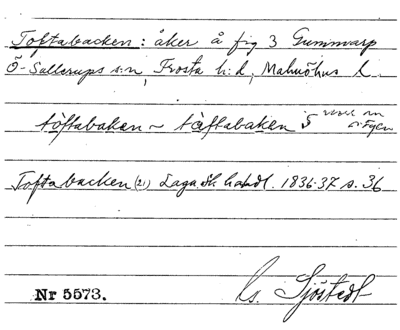 Toftabacken: åker å fig 3 Gummarp
Ö-Sallerups s:n, Frosta h:d, Malmöhus l.
tòftabaken ~ tàftabaken 5
Toftabacken (21) Laga sk. handl. 1836-37 s. 36
Nr 5573. Gs. Sjöstedt